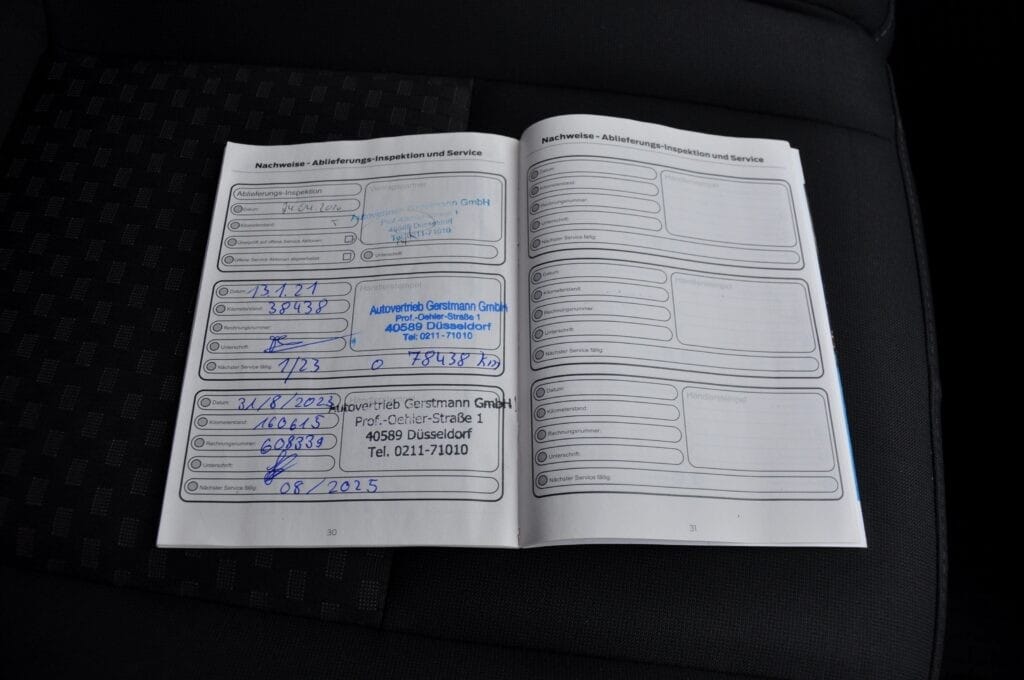 Nachweise - Ablieferungs-Inspektion und Service
Ablieferungs-Inspektion
Vertragspartner
Datum: 04.2020
Autovertrieb Gerstmann GmbH
Prof.-Oehler-Straße 1
40589 Düsseldorf
Tel: 0211-71010
Kilometerstand:
Überprüft auf offene Service Aktionen:
Offene Service Aktionen abgearbeitet:
Unterschrift:
Datum: 13.1.21
Händlerstempel
Kilometerstand: 38438
Autovertrieb Gerstmann GmbH
Prof.-Oehler-Straße 1
40589 Düsseldorf
Tel: 0211-71010
Rechnungsnummer:
Unterschrift:
Nächster Service fällig: 1/23 o 78438 km
Datum: 31/8/2023
Autovertrieb Gerstmann GmbH
Prof.-Oehler-Straße 1
40589 Düsseldorf
Tel. 0211-71010
Kilometerstand: 160615
Rechnungsnummer: 608339
Unterschrift:
Nächster Service fällig: 08/2025
30
Nachweise - Ablieferungs-Inspektion und Service
Datum:
Händlerstempel
Kilometerstand:
Rechnungsnummer:
Unterschrift:
Nächster Service fällig:
Datum:
Händlerstempel
Kilometerstand:
Rechnungsnummer:
Unterschrift:
Nächster Service fällig:
Datum:
Händlerstempel
Kilometerstand:
Rechnungsnummer:
Unterschrift:
Nächster Service fällig:
31